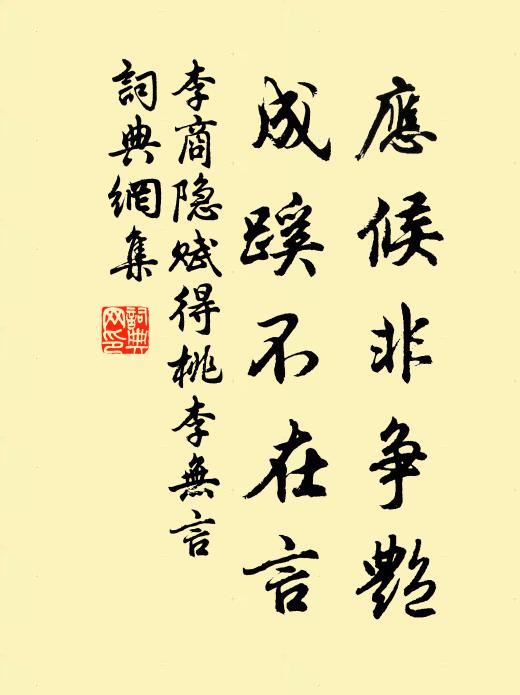 應候非争艷
成蹊不在言
李商隐赋得桃李無言
詞典網集
詞典网印